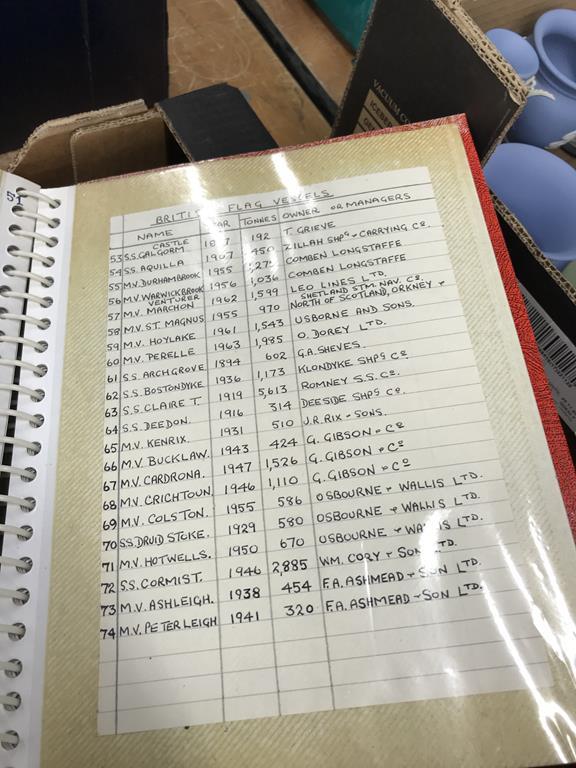 51
BRITISH FLAG VESSELS
NAME YEAR TONNES OWNER OR MANAGERS
CASTLE
53 S.S. GALGORM 192 T GRIEVE
54 S.S. AQUILLA 1907 450 ZILLAH SHPG & CARRYING CO.
55 M.V. DURHAMBROOK 1955 1,275 COMBEN LONGSTAFFE
56 M.V. WARWICKBROOK 1956 1,036 COMBEN LONGSTAFFE
VENTURER
57 M.V. MARCHON 1962 1,599 LEO LINES LTD.
SHETLAND STM. NAV. CO.
58 M.V. ST. MAGNUS 1955 970 NORTH OF SCOTLAND, ORKNEY &
59 M.V. HOYLAKE 1961 1,543 USBORNE AND SONS.
60 M.V. PERELLE 1963 1,985 O. DOREY LTD.
61 S.S. ARCHGROVE 1894 602 G.A. SHEVES.
62 S.S. BOSTONDYKE 1936 1,173 KLONDYKE SHPG CO
63 S.S. CLAIRE T. 1919 5,613 ROMNEY S.S. CO.
64 S.S. DEEDON. 1916 314 DEESIDE SHPG CO.
65 M.V. KENRIX. 1931 510 J.R. RIX & SONS.
66 M.V. BUCKLAW. 1943 424 G. GIBSON & CO
67 M.V. CARDRONA. 1947 1,526 G. GIBSON & CO
68 M.V. CRICHTOUN. 1946 1,110 G. GIBSON & CO
69 M.V. COLSTON. 1955 586 OSBOURNE & WALLIS LTD.
70 S.S. DRUID STOKE. 1929 580 OSBOURNE & WALLIS LTD.
71 M.V. HOTWELLS. 1950 670 OSBOURNE & WALLIS LTD.
72 S.S. CORMIST. 1946 2,885 WM. CORY & SON LTD.
73 M.V. ASHLEIGH. 1938 454 F.A. ASHMEAD & SON LTD.
74 M.V. PETERLEIGH 1941 320 F.A. ASHMEAD & SON LTD.